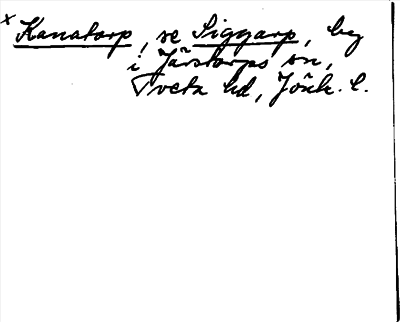 x Kanatorp, se Siggarp, by
i Järstorps sn,
Tveta hd, Jönk. l.